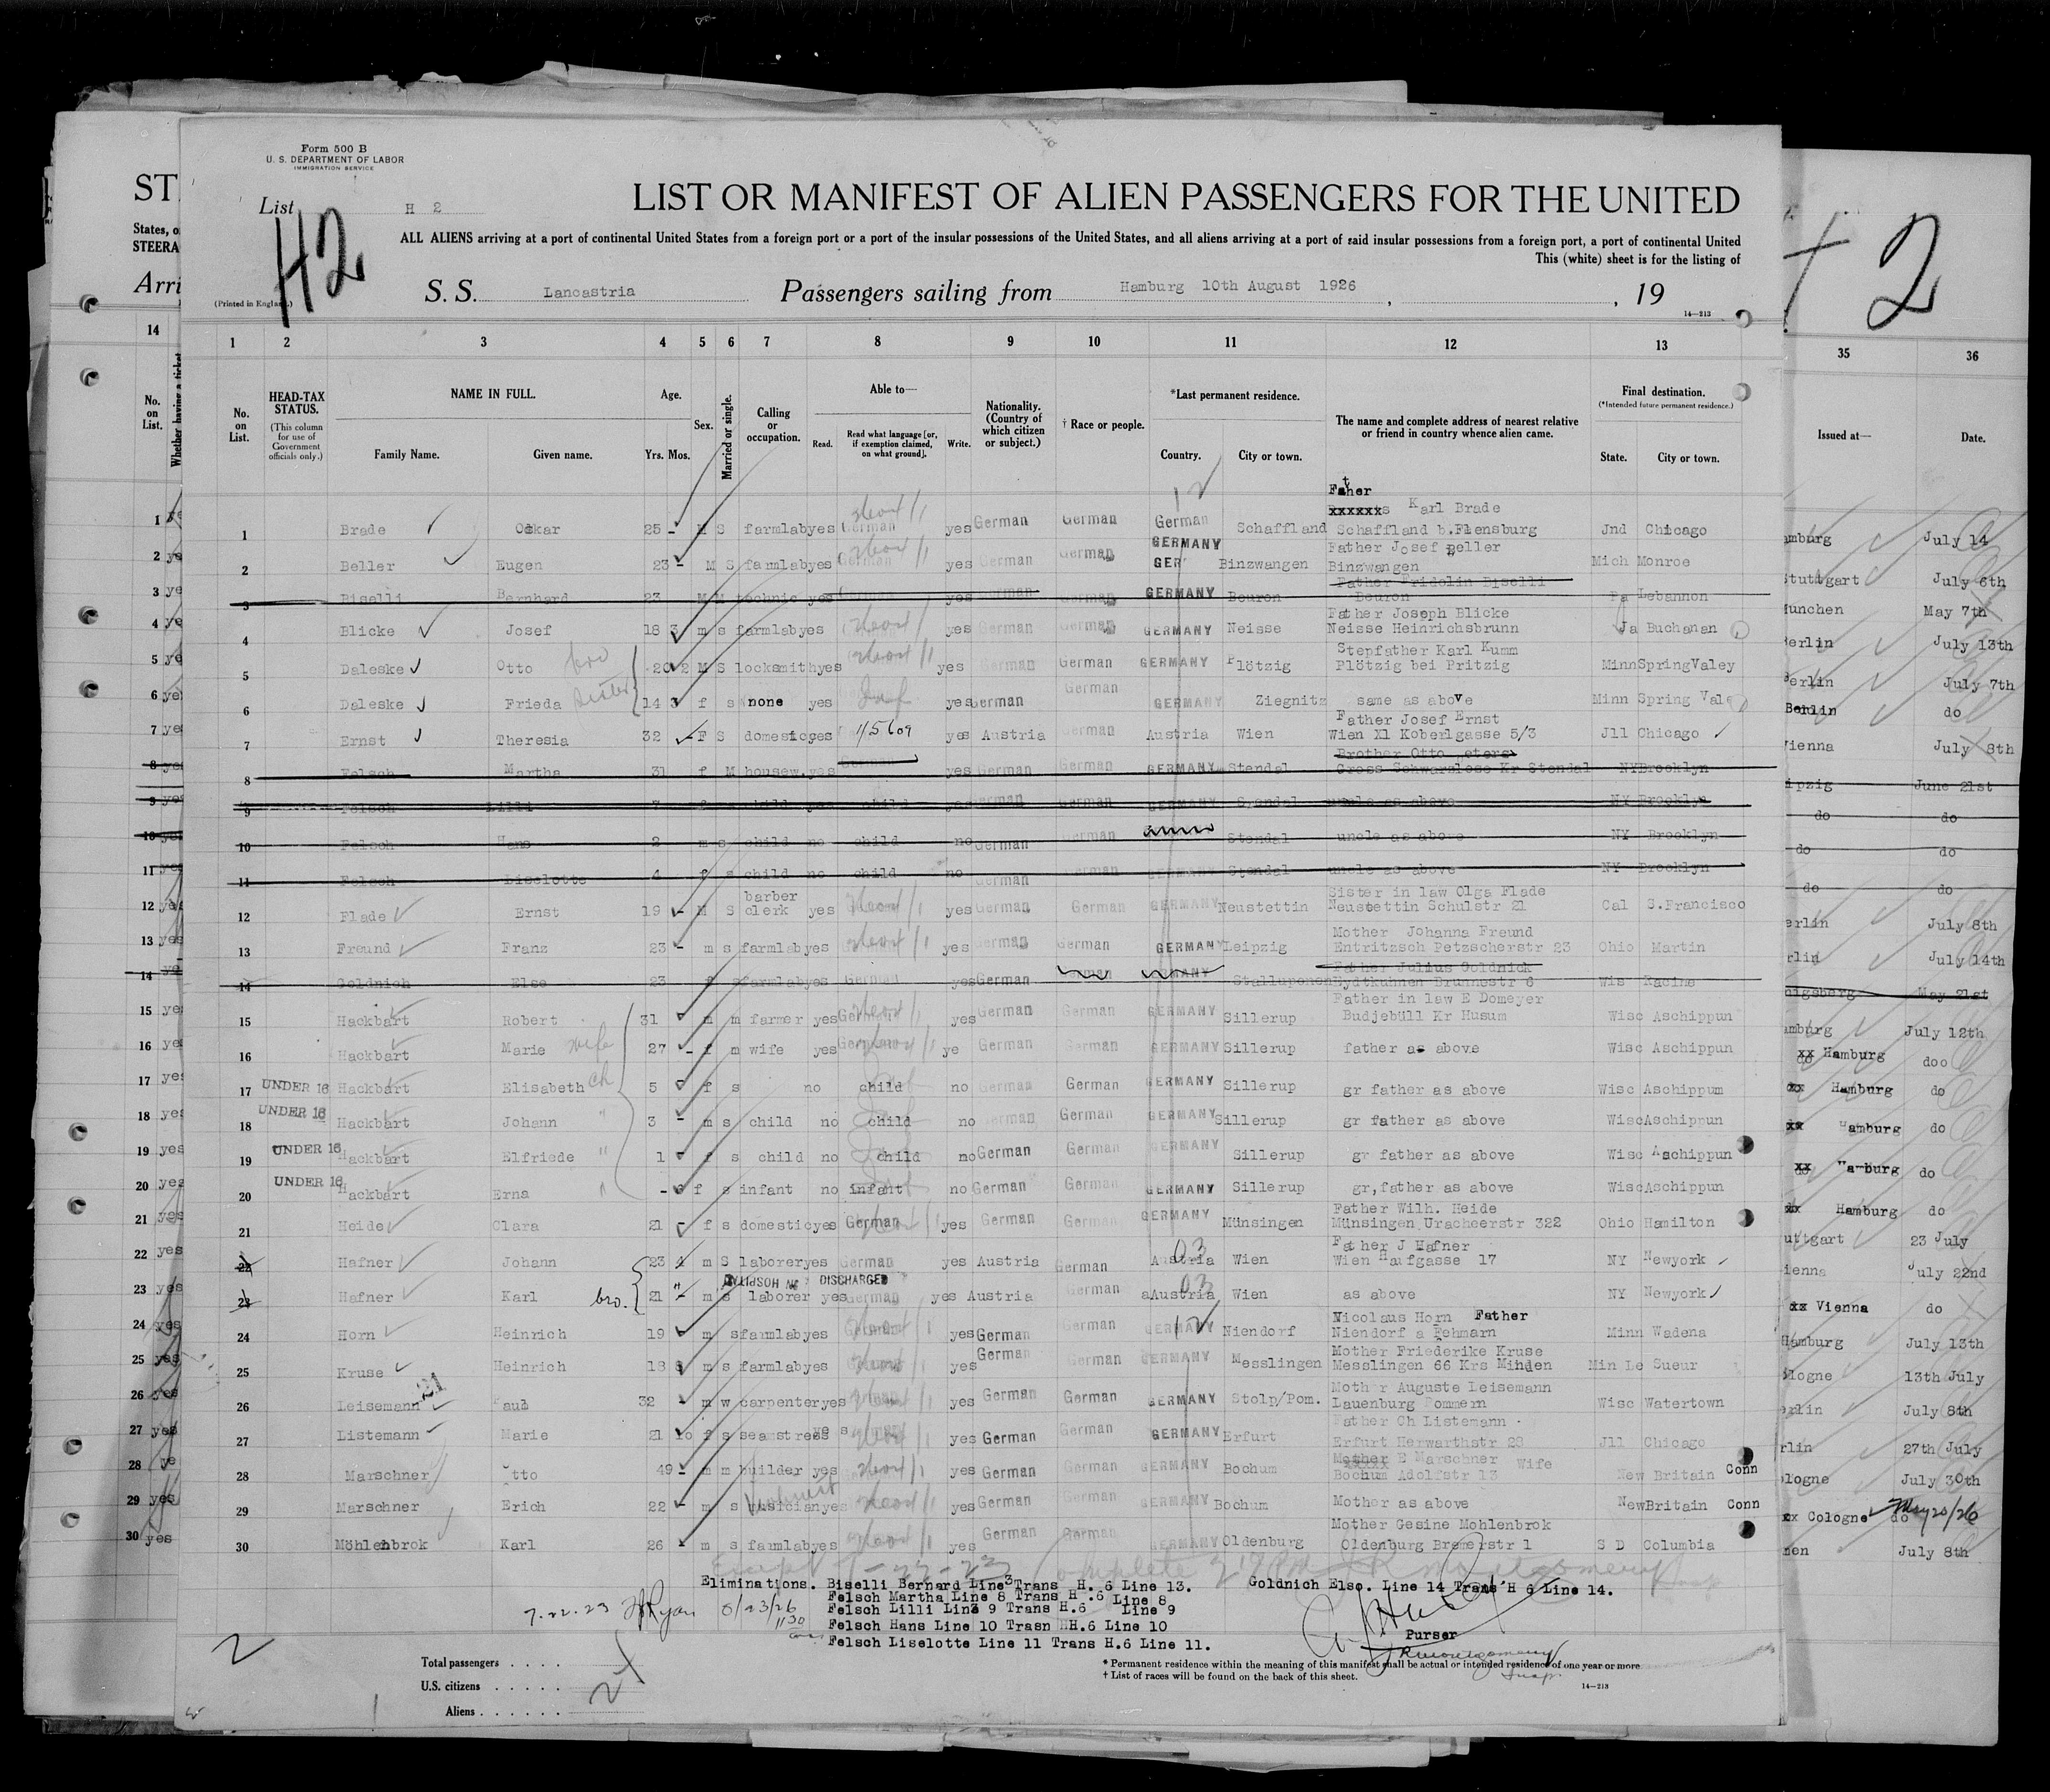 Form 500 B
U. S. DEPARTMENT OF LABOR
IMMIGRATION SERVICE
List H 2
H2
LIST OR MANIFEST OF ALIEN PASSENGERS FOR THE UNITED
ALL ALIENS arriving at a port of continental United States from a foreign port or a port of the insular possessions of the United States, and all aliens arriving at a port of said insular possessions from a foreign port, a port of continental United
This (white) sheet is for the listing of
(Printed in England.)
S. S. Lancastria Passengers sailing from Hamburg 10th August 1926, , 19
14—213
1 2 3 4 5 6 7 8 9 10 11 12 13
No. on List.
HEAD-TAX STATUS. (This column for use of Government officials only.)
NAME IN FULL. Family Name. Given name.
Age. Yrs. Mos.
Sex.
Married or single.
Calling or occupation.
Able to— Read. Read what language [or, if exemption claimed, on what ground]. Write.
Nationality. (Country of which citizen or subject.)
† Race or people.
*Last permanent residence. Country. City or town.
The name and complete address of nearest relative or friend in country whence alien came.
Final destination. (*Intended future permanent residence.) State. City or town.
35 36
Issued at— Date.
2
Father
1 Brade Oskar 25 - M S farmlab yes German yes German German German Schaffland Karl Brade Schaffland b.Flensburg Jnd Chicago July 14
2 Beller Eugen 23 - M S farmlab yes German yes German German GERMANY Binzwangen Father Josef Beller Binzwangen Mich Monroe Stuttgart July 6th
3 Biselli Bernhard 23 M M technic yes German yes German German GERMANY Beuron Father Fridolin Biselli Beuron Pa Lebannon Munchen May 7th
4 Blicke Josef 18 3 m s farmlab yes yes German German GERMANY Neisse Father Joseph Blicke Neisse Heinrichsbrunn Ja Buchanan Berlin July 13th
5 Daleske Otto bro 20 2 M S locksmith yes yes German German GERMANY Plötzig Stepfather Karl Kumm Plötzig bei Pritzig Minn SpringValey Berlin July 7th
6 Daleske Frieda Sister 14 3 f s none yes yes German German GERMANY Ziegnitz same as above Minn Spring Vale Berlin do
7 Ernst Theresia 32 - F S domestic yes yes Austria German Austria Wien Father Josef Ernst Wien Xl Koberlgasse 5/3 Jll Chicago Vienna July 8th
8 Felsch Martha 31 f M housew. yes German yes German German GERMANY Stendal Brother Otto Peters Gross Schwarzlose Kr Stendal NY Brooklyn June 21st
9 Felsch Lilli 7 f s child yes child yes German German GERMANY Stendal uncle as above NY Brooklyn do do
10 Felsch Hans 2 m s child no child no German German Stendal uncle as above NY Brooklyn do do
11 Felsch Liselotte 4 f s child no child no German German GERMANY Stendal uncle as above NY Brooklyn do do
12 Flade Ernst 19 - M S barber clerk yes yes German German GERMANY Neustettin Sister in law Olga Flade Neustettin Schulstr 21 Cal S.Francisco Berlin July 8th
13 Freund Franz 23 - m s farmlab yes yes German German GERMANY Leipzig Mother Johanna Freund Entritzsch Petzscherstr 23 Ohio Martin July 14th
14 Goldnich Else 23 f s farmlab yes German yes German German GERMANY Stalluponen Father Julius Goldnick Eydtkuhnen Brunnestr 6 Wis Racine May 21st
15 Hackbart Robert 31 m m farmer yes German yes German German GERMANY Sillerup Father in law E Domeyer Budjebüll Kr Husum Wisc Aschippun July 12th
16 Hackbart Marie wife 27 - f m wife yes German ye German German GERMANY Sillerup father as above Wisc Aschippun Hamburg doo
17 UNDER 16 Hackbart Elisabeth ch 5 f s no child no German German GERMANY Sillerup gr father as above Wisc Aschippum Hamburg do
18 UNDER 16 Hackbart Johann " 3 - m s child no child no German German GERMANY Sillerup gr father as above Wisc Aschippun Hamburg do
19 UNDER 16 Hackbart Elfriede " 1 f s child no child no German German GERMANY Sillerup gr father as above Wisc Aschippun Hamburg do
20 UNDER 16 Hackbart Erna " - 6 f s infant no infant no German German GERMANY Sillerup gr,father as above Wisc Aschippun Hamburg do
21 Heide Clara 21 - f s domestic yes German yes German German GERMANY Münsingen Father Wilh. Heide Münsingen Uracheerstr 322 Ohio Hamilton 23 July
22 Hafner Johann 23 4 m S laborer yes German yes Austria German Austria 03 Wien Father J Hafner Wien Haufgasse 17 NY Newyork July 22nd
DISCHARGED
23 Hafner Karl bro. 21 - m s laborer yes German yes Austria German aAustria 03 Wien as above NY Newyork Vienna do
24 Horn Heinrich 19 m s farmlab yes German yes German German GERMANY Niendorf Nicolaus Horn Father Niendorf a Fehmarn Minn Wadena Hamburg July 13th
25 Kruse Heinrich 18 m s farmlab yes yes German German GERMANY Messlingen Mother Friederike Kruse Messlingen 66 Krs Minden Min Le Sueur 13th July
26 Leisemann Paul 32 m w carpenter yes yes German German GERMANY Stolp/Pom. Mother Auguste Leisemann Lauenburg Pommern Wisc Watertown July 8th
27 Listemann Marie 21 10 f s seamstress yes yes German German GERMANY Erfurt Father Ch Listemann Erfurt Herwarthstr 28 Jll Chicago 27th July
28 Marschner Otto 49 - m m builder yes yes German German GERMANY Bochum Mother E Marschner Wife Bochum Adolfstr 13 New Britain Conn July 30th
29 Marschner Erich 22 - m s musician yes yes German German GERMANY Bochum Mother as above NewBritain Conn xx Cologne do May 20/26
30 Möhlenbrok Karl 26 m s farmlab yes yes German German GERMANY Oldenburg Mother Gesine Mohlenbrok Oldenburg Bremerstr 1 S D Columbia July 8th
Eliminations. Biselli Bernard Line 3 Trans H. 6 Line 13. Goldnich Else. Line 14 Trans H 6 Line 14.
Felsch Martha Line 8 Trans H .6 Line 8
Felsch Lilli Line 9 Trans H.6 Line 9
Felsch Hans Line 10 Trasn HH.6 Line 10
Felsch Liselotte Line 11 Trans H.6 Line 11.
7.22.23 8/23/26
Purser
2
Total passengers . . . .
U.S. citizens . . . . .
Aliens . . . . . .
* Permanent residence within the meaning of this manifest shall be actual or intended residence of one year or more
† List of races will be found on the back of this sheet.
14—213